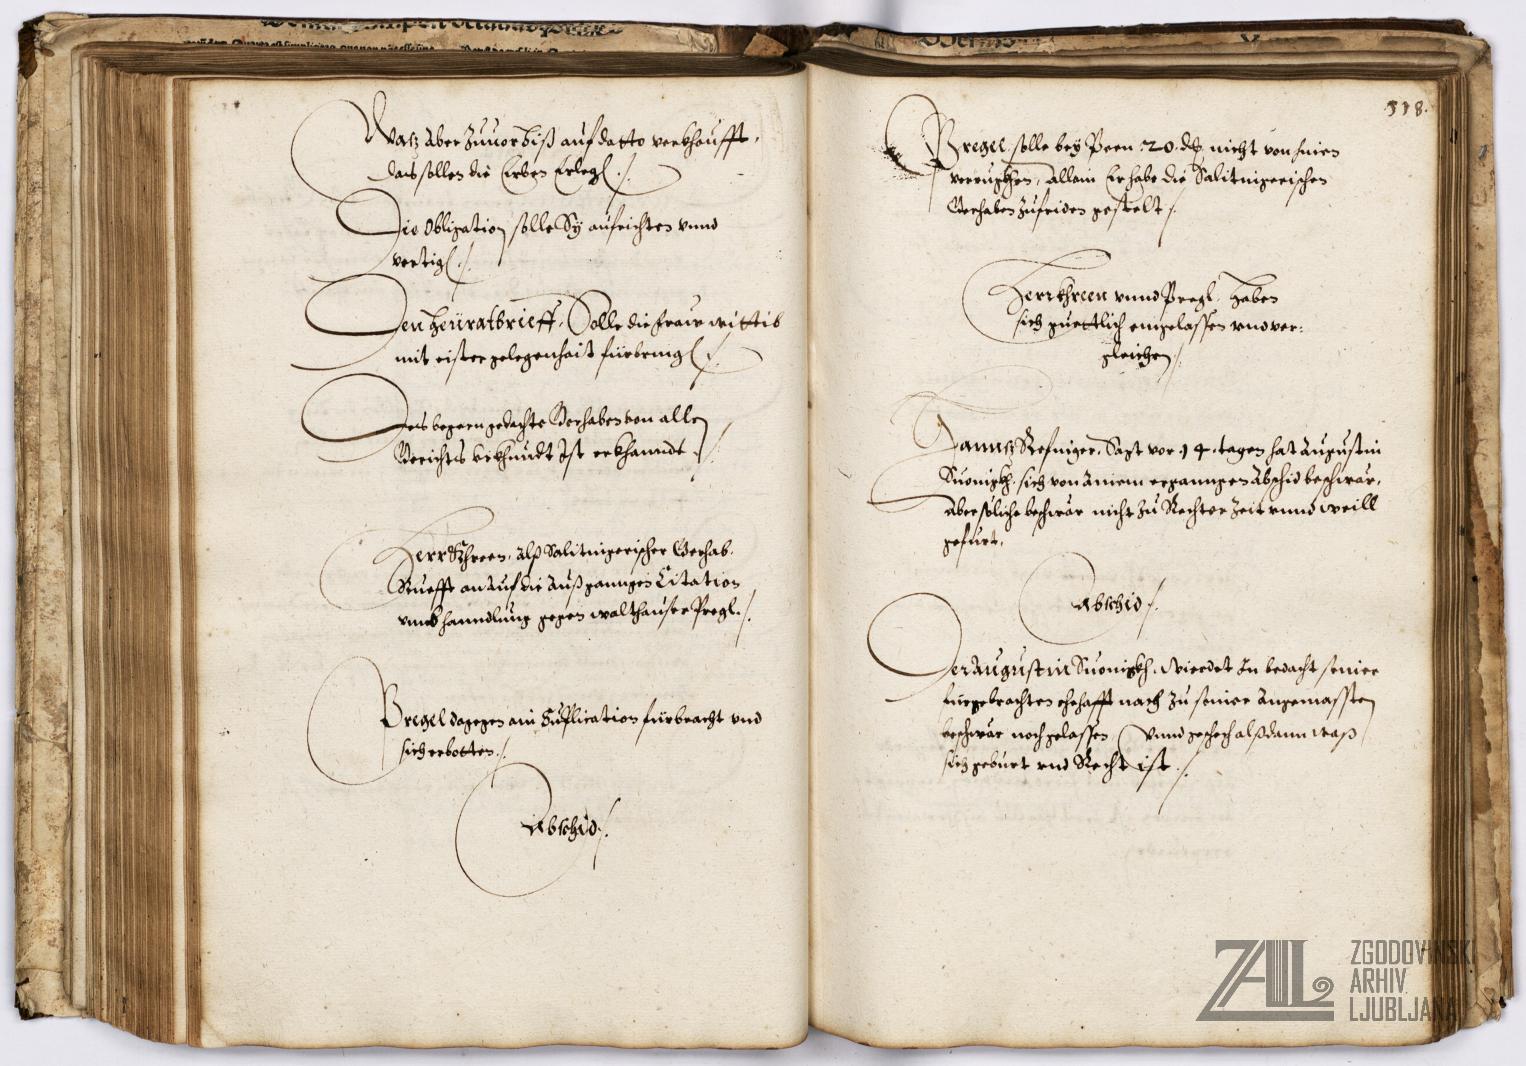 Waß Aber Zuuor biß auf datto verkhaufft,
das sollen die Erben Erlegen ./.
Die Obligation solle Sy aufrichten vnnd
vertigen ./.
Den Heüratbrieff, Solle die fraw wittib
mit eister gelegenhait fürbringen ./.
Des begern gedachte Gerhaben von allen
Gerichts vrkhundt Ist erkhanndt ./.
Herr Khreen, Alß Salitingerischer Gerhab,
Ruefft an Auf die Außganngen Citation
vmb hanndlung gegen walthauser Pregl ./.
Pregel dagegen ain Suplication fürbracht vnd
sich erbotten ./.
Abschid ./.
318.
Pregel solle bey Peen 20. nicht von hinen
verrugkhen, Allain Er habe die Salitingerischen
Gerhaben zufriden gestelt ./.
Herr Khreen vnnd Pregl, haben
sich guettlich eingelassen vnd ver:
gleichen ./.
Sagt vor 14. tagen hat Augustin
sich von Ainem ergangnen Abschid beschwär,
Aber söliche beschwär nicht zu Rechter Zeit vnnd weill
gefürt,
Abschid ./.
Der Augustin wierdet In bedacht seiner
fürgebrachten ehehafft nach zu seiner Angemassten
beschwär noch gelassen, Vnnd geschech alßdann waß
sich gebürt vnd Recht ist ./.
ZAL
ZGODOVINSKI
ARHIV
LJUBLJANA